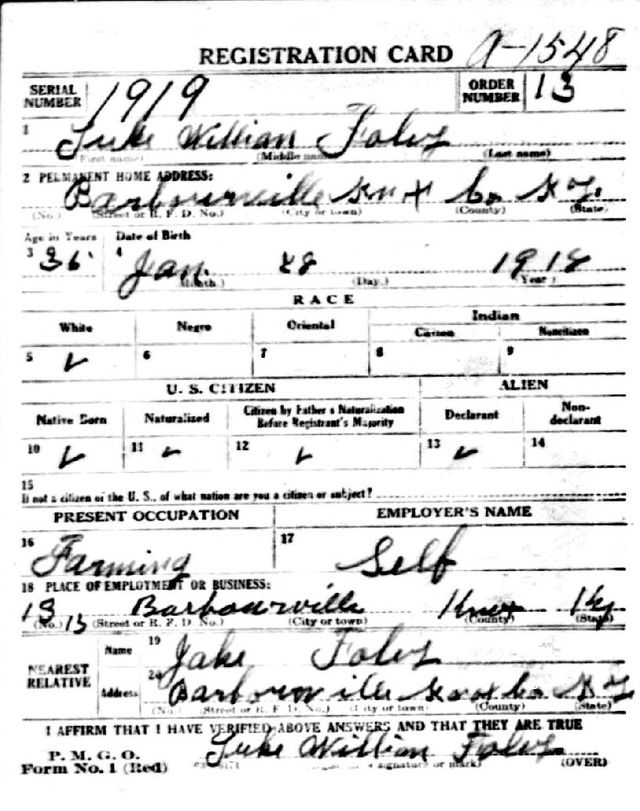 REGISTRATION CARD A-1548
SERIAL NUMBER 1919 ORDER NUMBER 13
1 Luke William Foley
(First name) (Middle name) (Last name)
2 PERMANENT HOME ADDRESS:
Barbourville Knox Co. Ky.
(No.) (Street or R. F. D. No.) (City or town) (County) (State)
Age in Years Date of Birth
3 36 4 Jan. 28
(Month.) (Day.) (Year)
RACE
White Negro Oriental Indian
Citizen Noncitizen
5 ✓ 6 7 8 9
U. S. CITIZEN ALIEN
Native Born Naturalized Citizen by Father's Naturalization Before Registrant's Majority Declarant Non-declarant
10 ✓ 11 ✓ 12 ✓ 13 ✓ 14
15
If not a citizen of the U. S., of what nation are you a citizen or subject?
PRESENT OCCUPATION EMPLOYER'S NAME
16 Farming 17 Self
18 PLACE OF EMPLOYMENT OR BUSINESS:
Barbourville Knox Ky
(No.) (Street or R. F. D. No.) (City or town) (County) (State)
NEAREST RELATIVE Name 19 Jake Foley
Address 20 Barbourville Knox Co. Ky
(No.) (Street or R. F. D. No.) (City or town) (County) (State)
I AFFIRM THAT I HAVE VERIFIED ABOVE ANSWERS AND THAT THEY ARE TRUE
P. M. G. O.
Form No. 1 (Red) Luke William Foley
signature or mark) (OVER)